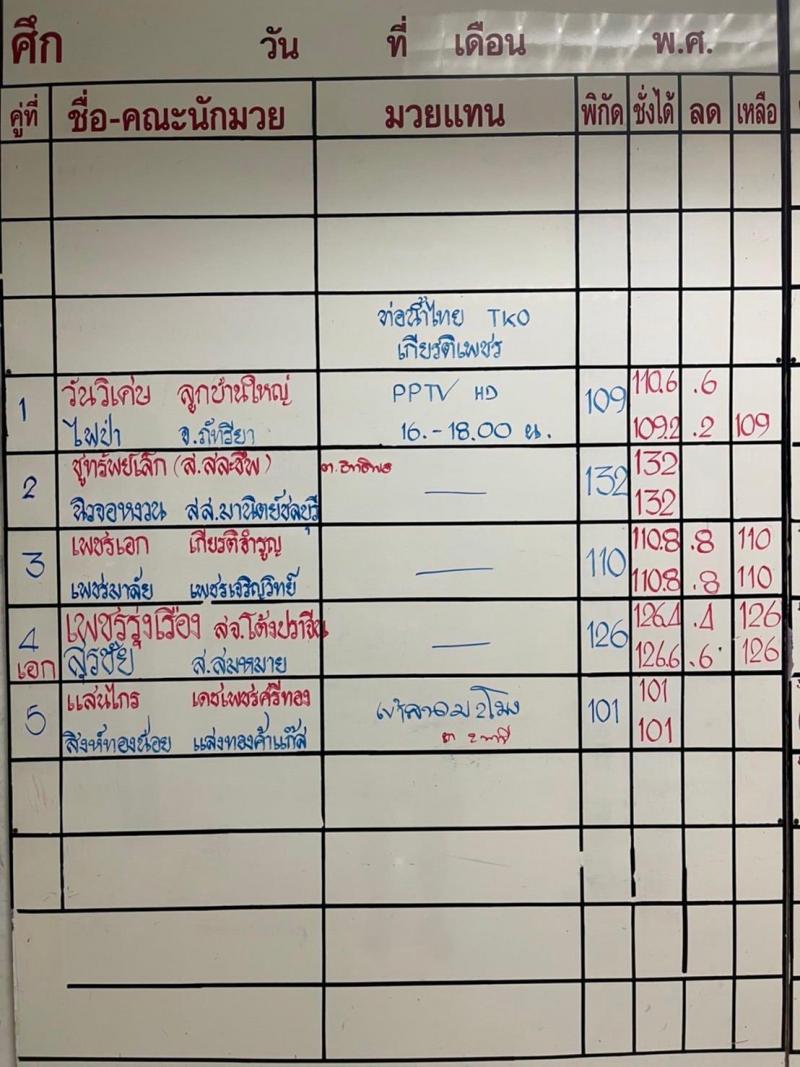 ศึก วัน ที่ เดือน พ.ศ.
คู่ที่ ชื่อ-คณะนักมวย มวยแทน พิกัด ชั่งได้ ลด เหลือ
ท่อน้ำไทย TKO
เกียรติเพชร
1 วันวิเศษ ลูกบ้านใหญ่ PPTV HD 109 110.6 .6
ไฟป่า จ.ภัทรียา 16.-18.00 น. 109.2 .2 109
2 ชูทรัพย์เล็ก (ส.สละชีพ) 132 132
นิวจอหงวน สส.มานิตย์ชลบุรี 132
3 เพชรเอก เกียรติจำรูญ 110 110.8 .8 110
เพชรมาลัย เพชรเจริญวิทย์ 110.8 .8 110
4 เพชรรุ่งเรือง สจ.โต้งปราจีน 126 126.4 .4 126
เอก สุรชัย ส.สมหมาย 126.6 .6 126
5 แสนไกร เดชเพชรศรีทอง 101 101
สิงห์ทองน้อย แสงทองค้าแก๊ส 101